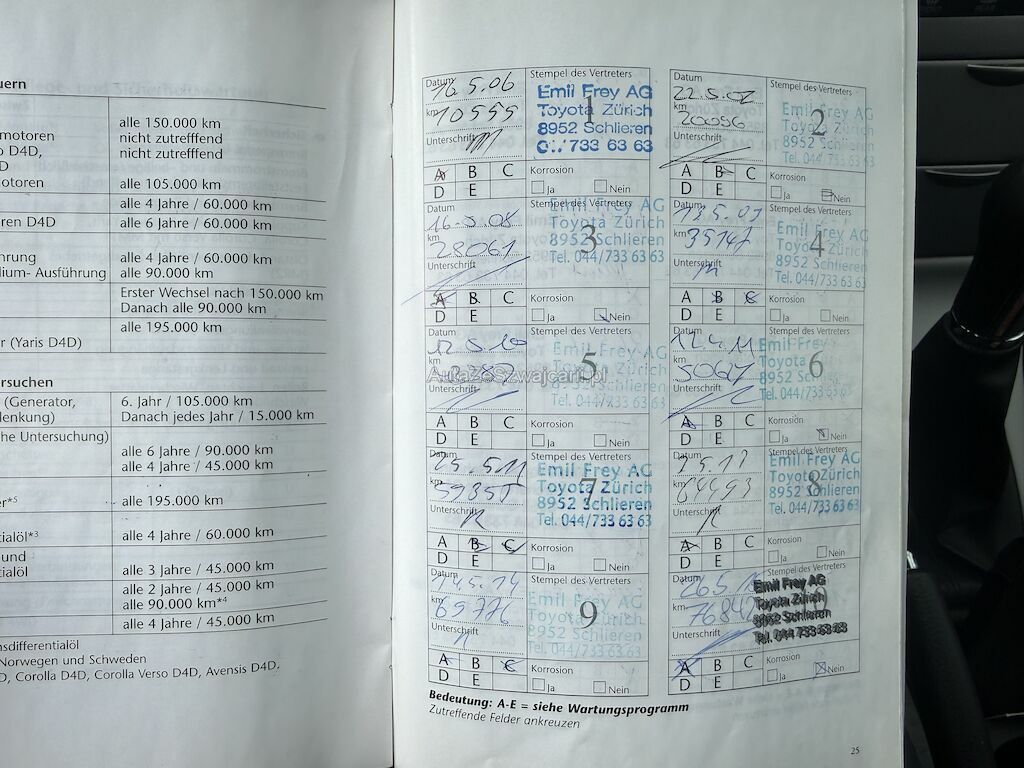 uern
alle 150.000 km
motoren
nicht zutrefffend
o D4D,
nicht zutrefffend
D
motoren
alle 105.000 km
alle 4 Jahre / 60.000 km
ren D4D
alle 6 Jahre / 60.000 km
hrung
alle 4 Jahre / 60.000 km
dium- Ausführung
alle 90.000 km
Erster Wechsel nach 150.000 km
Danach alle 90.000 km
alle 195.000 km
r (Yaris D4D)
ersuchen
(Generator,
6. Jahr / 105.000 km
lenkung)
Danach jedes Jahr / 15.000 km
he Untersuchung)
alle 6 Jahre / 90.000 km
alle 4 Jahre / 45.000 km
er*5
alle 195.000 km
tialöl*3
alle 4 Jahre / 60.000 km
und
tialöl
alle 3 Jahre / 45.000 km
alle 2 Jahre / 45.000 km
alle 90.000 km*4
alle 4 Jahre / 45.000 km
nsdifferentialöl
Norwegen und Schweden
D, Corolla D4D, Corolla Verso D4D, Avensis D4D.
Datum
16.5.06
km
10555
Unterschrift
Stempel des Vertreters
1
Emil Frey AG
Toyota Zürich
8952 Schlieren
733 63 63
A B C
D E
Korrosion
Ja Nein
Datum
km
20056
Unterschrift
Stempel des Vertreters
2
Emil Frey AG
Toyota Zürich
8952 Schlieren
Tel. 044/733 63 63
A B C
D E
Korrosion
Ja Nein
Datum
16.5.08
km
28061
Unterschrift
Stempel des Vertreters
3
Emil Frey AG
Toyota Zürich
8952 Schlieren
Tel. 044/733 63 63
A B C
D E
Korrosion
Ja Nein
Datum
km
35147
Unterschrift
Stempel des Vertreters
4
Emil Frey AG
Toyota Zürich
8952 Schlieren
Tel. 044/733 63 63
A B C
D E
Korrosion
Ja Nein
Datum
12.5.10
km
Unterschrift
Stempel des Vertreters
5
Emil Frey AG
Toyota Zürich
8952 Schlieren
Tel. 044/733 63 63
A B C
D E
Korrosion
Ja Nein
Datum
12.4.11
km
Unterschrift
Stempel des Vertreters
6
Emil Frey AG
Toyota Zürich
8952 Schlieren
Tel. 044/733 63 63
A B C
D E
Korrosion
Ja Nein
Datum
km
Unterschrift
Stempel des Vertreters
7
Emil Frey AG
Toyota Zürich
8952 Schlieren
Tel. 044/733 63 63
A B C
D E
Korrosion
Ja Nein
Datum
km
64493
Unterschrift
Stempel des Vertreters
8
Emil Frey AG
Toyota Zürich
8952 Schlieren
Tel. 044/733 63 63
A B C
D E
Korrosion
Ja Nein
Datum
14.5.14
km
69776
Unterschrift
Stempel des Vertreters
9
Emil Frey AG
Toyota Zürich
8952 Schlieren
Tel. 044/733 63 63
A B C
D E
Korrosion
Ja Nein
Datum
km
76842
Unterschrift
Stempel des Vertreters
Emil Frey AG
Toyota Zürich
8952 Schlieren
Tel. 044 733 63 63
A B C
D E
Korrosion
Ja Nein
AutaZeSzwajcarii.pl
Bedeutung: A-E = siehe Wartungsprogramm
Zutreffende Felder ankreuzen
25